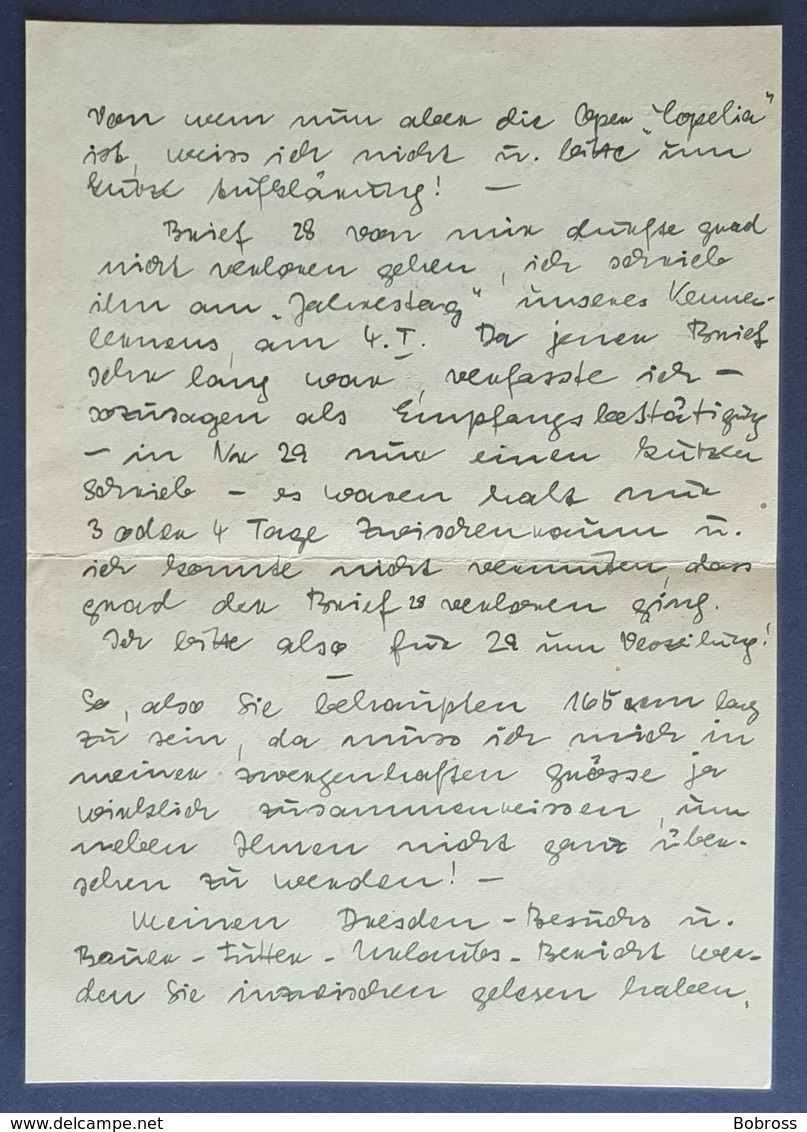 Von wem nun aber die Oper "Copelia"
ist, weiss ich nicht u. bitte um
kurze Aufklärung! —
Brief 28 von mir durfte grad
nicht verloren gehen, ich schrieb
ihn am „Jahrestag" unseres Kennen-
lernens, am 4. I. Da jener Brief
sehr lang war, verfasste ich –
sozusagen als Empfangsbestätigung
– in Nr 29 nur einen kurzen
Schrieb – es waren halt nur
3 oder 4 Tage Zwischenraum u.
ich konnte nicht vermuten, dass
grad der Brief 28 verloren ging.
Ich bitte also für 29 um Verzeihung!
—
So, also Sie behaupten 165 cm lang
zu sein, da muss ich mich in
meiner zwergenhaften Grösse ja
wirklich zusammenreissen, um
neben Ihnen nicht ganz über-
sehen zu werden! —
Meinen Dresden-Besuchs u.
Bauer-Futter-Urlaubs-Bericht wer-
den Sie inzwischen gelesen haben,
www.delcampe.net
Bobross